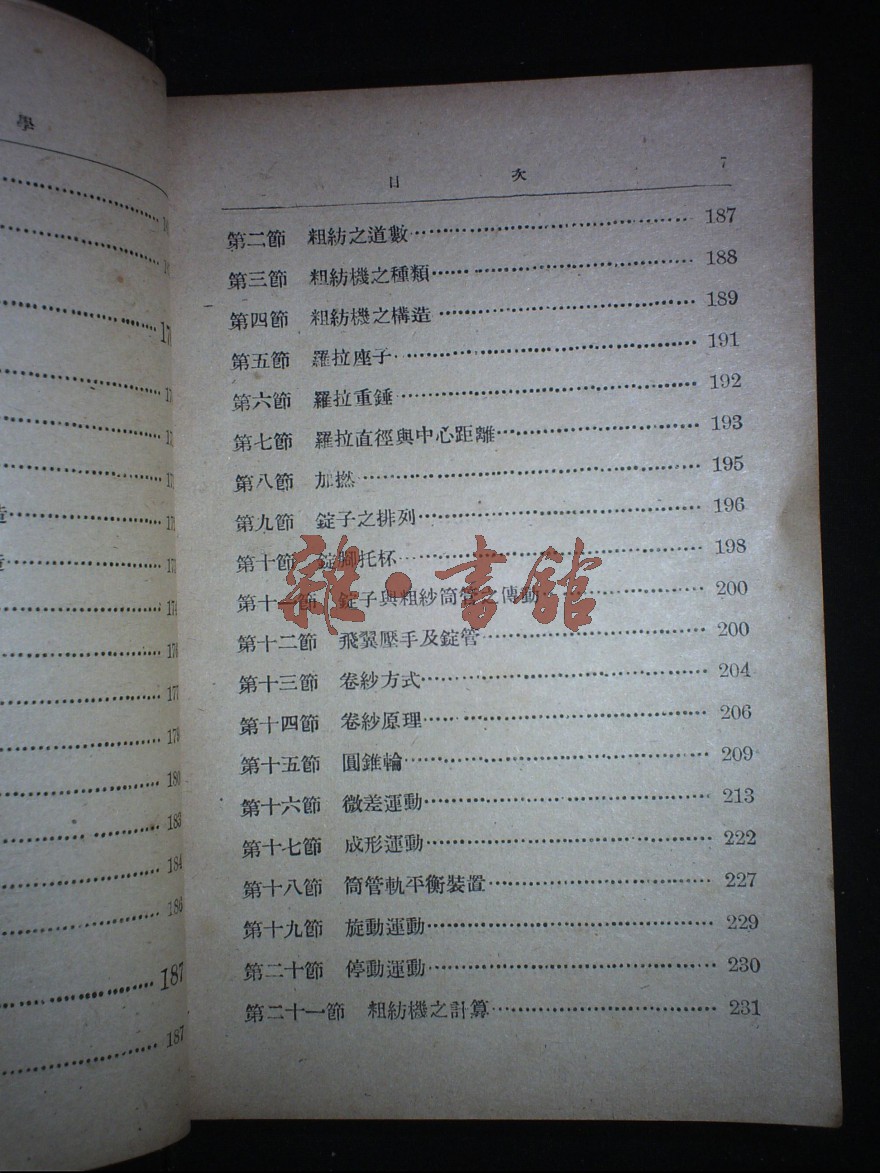 學
187
187
目 次 7
第二節 粗紡之道數 187
第三節 粗紡機之種類 188
第四節 粗紡機之構造 189
第五節 羅拉座子 191
第六節 羅拉重錘 192
第七節 羅拉直徑與中心距離 193
第八節 加撚 195
第九節 錠子之排列 196
第十節 錠脚托杯 198
第十一節 錠子與粗紗筒管之傳動 200
第十二節 飛翼壓手及錠管 200
第十三節 卷紗方式 204
第十四節 卷紗原理 206
第十五節 圓錐輪 209
第十六節 微差運動 213
第十七節 成形運動 222
第十八節 筒管軌平衡裝置 227
第十九節 旋動運動 229
第二十節 停動運動 230
第二十一節 粗紡機之計算 231
雜·書館